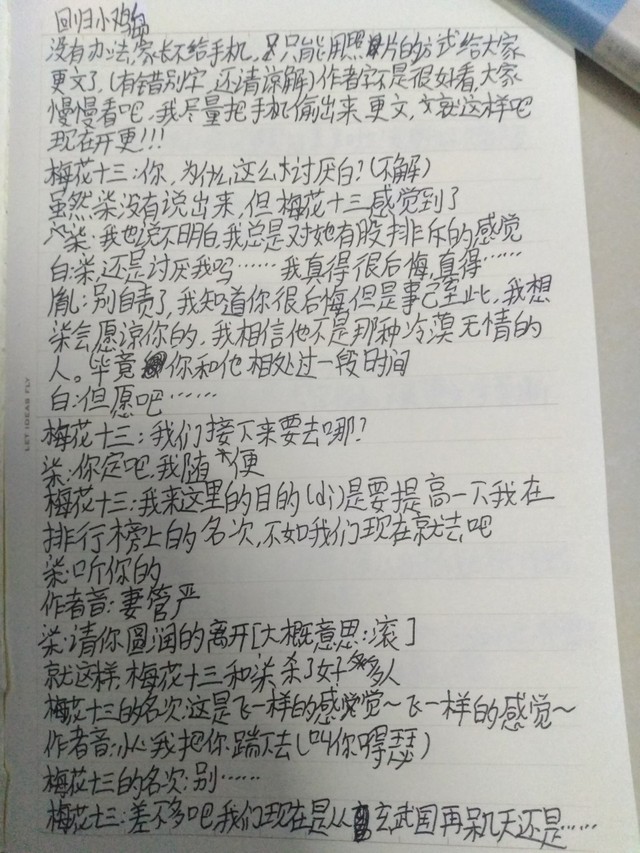 回归小鸡台
没有办法,家长不给手机,只能用照片的方式给大家
更文了,(有错别字,还请谅解)作者字不是很好看,大家
慢慢看吧,我尽量把手机偷出来更文,就这样吧
现在开更!!!
梅花十三:你,为什么这么讨厌白?(不解)
虽然柒没有说出来,但梅花十三感觉到了
柒:我也说不明白,我总是对她有股排斥的感觉
白:柒,还是讨厌我吗……我真得很后悔,真得……
胤:别自责了,我知道你很后悔但是事已至此,我想
柒会愿谅你的,我相信他不是那种冷漠无情的
人。毕竟你和他相处过一段时间
白:但愿吧……
梅花十三:我们接下来要去哪?
柒:你定吧,我随便
梅花十三:我来这里的目的(di)是要提高一下我在
排行榜上的名次,不如我们现在就去吧
柒:听你的
作者音:妻管严
柒:请你圆润的离开[大概意思:滚]
就这样,梅花十三和柒杀了好多人
梅花十三的名次:这是飞一样的感觉~飞一样的感觉~
作者音:小心我把你踹下去(叫你嘚瑟)
梅花十三的名次:别……
梅花十三:差不多吧,我们现在是从玄武国再呆几天还是……
LET IDEAS FLY